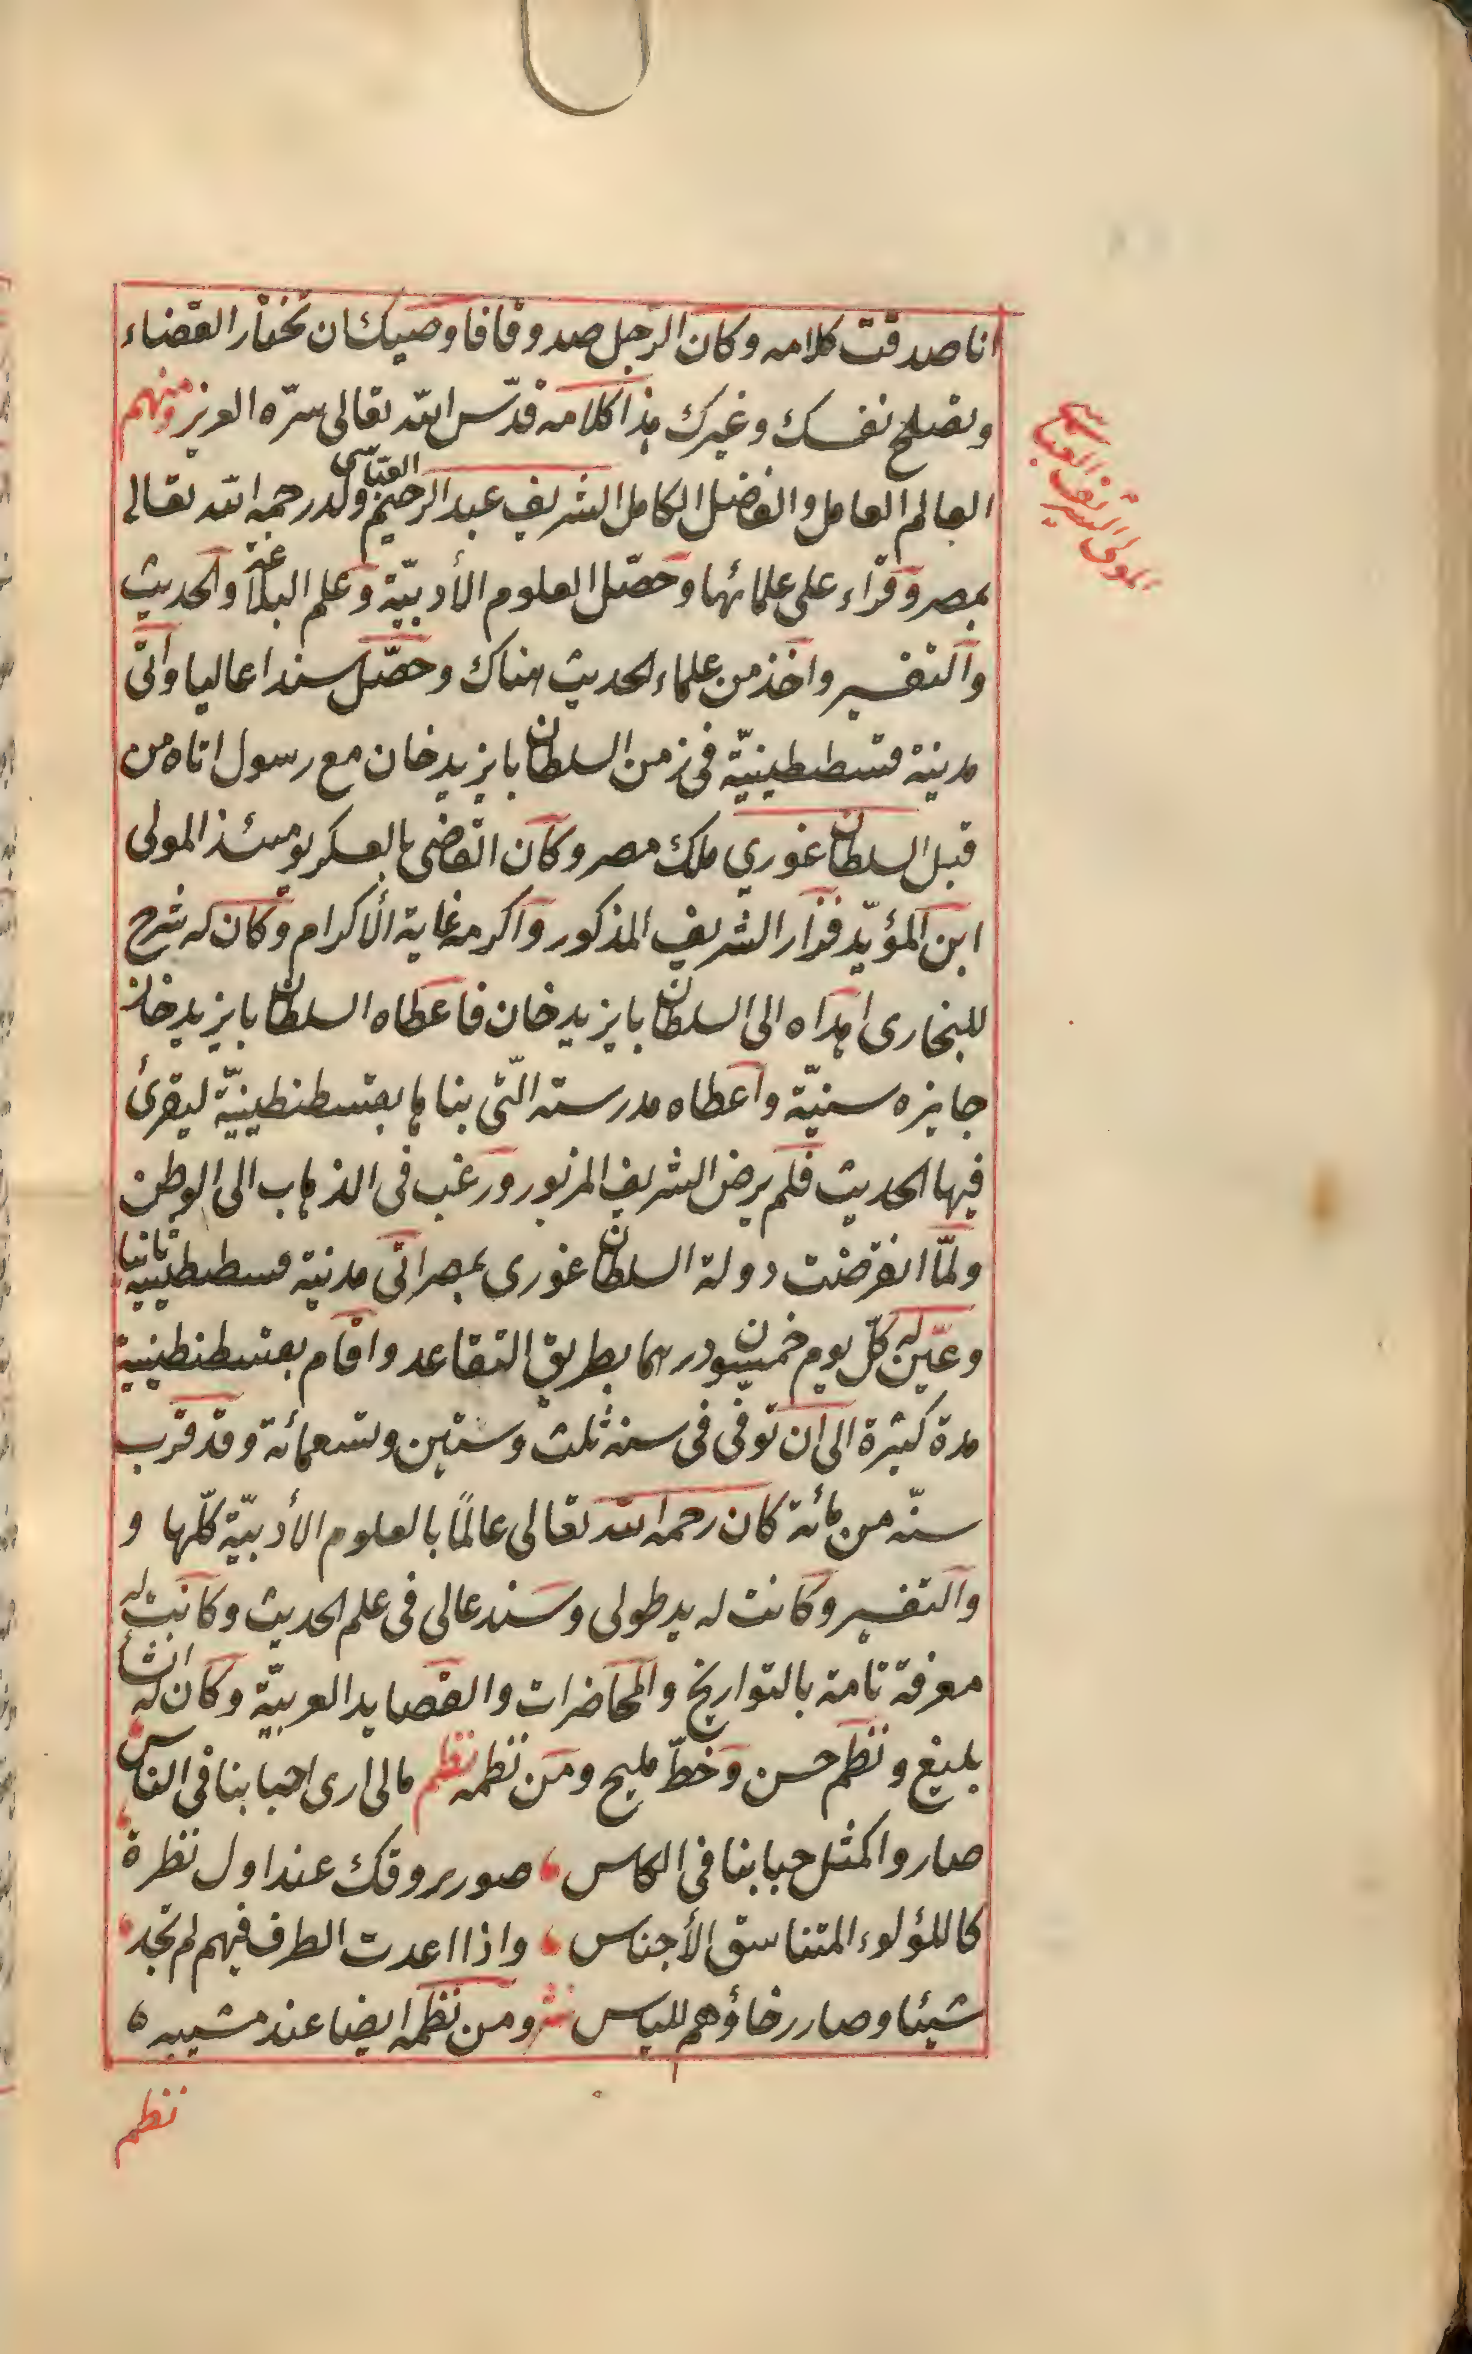 انا صدقت كلامه وكان الرجل صدوقا فاوصيك ان تختار القضاء
وتصلح نفسك وغيرك هذا كلامه قدّس الله تعالى سرّه العزيز ومنهم
العالم العامل والفاضل الكامل الشريف عبد الرحيم العبّاسى ولد رحمه الله تعالى
بمصر وقراء على علمائها وحصّل العلوم الأدبيّة وعلم البلاغة والحديث
والتفسير واخذ من علماء الحديث هناك وحصّل سندا عاليا واتى
مدينة قسطنطينيّة فى زمن السلطان بايزيد خان مع رسول اتاه من
قبل السلطان غوري ملك مصر وكان القاضى بالعسكر يومئذ المولى
ابن المؤيّد فزار الشريف المذكور واكرمه غاية الأكرام وكان له شرح
للبخارى اهداه الى السلطان بايزيد خان فاعطاه السلطان بايزيد خان
جايزه سنيّة واعطاه مدرسته الّتى بناها بقسطنطينيّة ليقرئ
فيها الحديث فلم يرض الشريف المزبور ورغب فى الذهاب الى الوطن
ولمّا انقرضت دولة السلطان غورى بمصر اتى مدينة قسطنطينيّة ثانيا
وعيّن له كلّ يوم خمسون درهما بطريق التقاعد واقام بقسطنطينية
مدة كثيرة الى ان توفى فى سنة ثلث وستين وتسعمائة وقد قرب
سنّه من مائة كان رحمه الله تعالى عالمًا بالعلوم الأدبيّة كلّها و
والتفسير وكانت له يد طولى وسند عالى فى علم الحديث وكانت له
معرفة تامة بالتواريخ والمحاضرات والقصايد العربيّة وكان له انشأ
بليغ ونظم حسن وخطّ مليح ومن نظمه نظم مالى ارى احبابنا فى الناس
صاروا كمثل حبابنا فى الكاس صور يروقك عند اول نظرة
كاللؤلوء المتناسق الأجناس واذا اعدت الطرف فيهم لم تجد
شيئا وصار رخاؤهم للياس ومن نظمه ايضا عند مشيبه
نظم
المولى الشريف العباسى